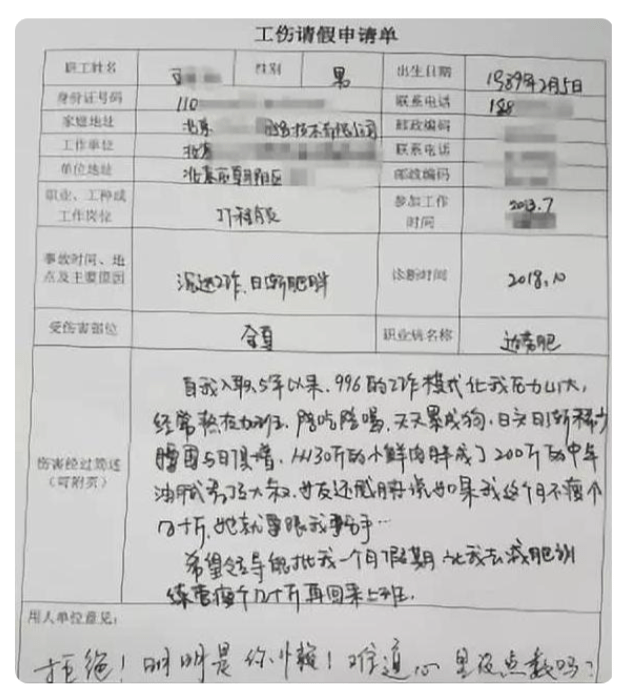 工伤请假申请单
职工姓名 性别 男 出生日期 1989年2月5日
身份证号码 110 联系电话 188
家庭地址 邮政编码
工作单位 联系电话
单位地址 邮政编码
职业、工种或 参加工作 2013.7
工作岗位 时间
事故时间、地 沉迷工作,日渐肥胖 诊断时间 2018.10
点及主要原因
受伤害部位 全身 职业病名称 过劳肥
自我入职5年以来,996的工作模式让我压力山大,
经常熬夜加班,陪吃陪喝,天天累成狗,日渐稀少
腰围与日俱增,从130斤的小鲜肉胖成了200斤的中年
伤害经过简述 油腻大叔,女友还威胁说如果我这个月不瘦个
(可附页) 几十斤,她就要跟我分手…
希望领导能批我一个月假期 让我去减肥训
练营瘦个几十斤再回来上班.
用人单位意见:
拒绝!明明是你懒!难道心里没点数吗?